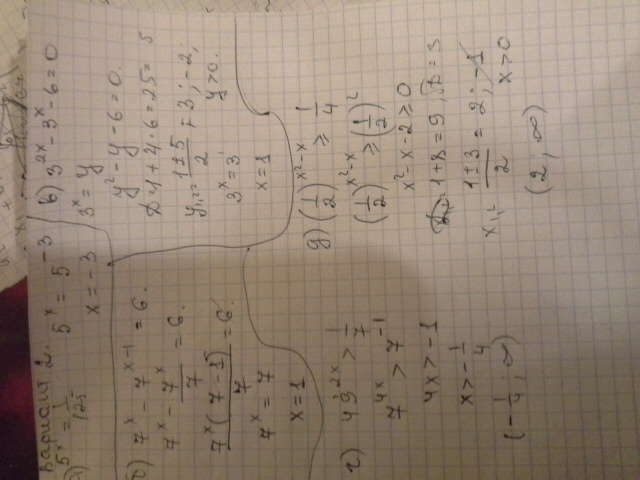 Вариант 2.
а) 5^x = 1/125   5^x = 5^-3
x = -3
б) 7^x - 7^(x-1) = 6.
7^x - 7^x/7 = 6.
7^x(7-1)/7 = 6
7^x = 7
x = 1
в) 3^2x - 3^x - 6 = 0
3^x = y
y² - y - 6 = 0.
D = 1 + 4·6 = 25 = 5
y1,2 = (1±5)/2 = 3; -2;
y > 0.
3^x = 3
x = 1
г) 49^2x > 1/7
7^4x > 7^-1
4x > -1
x > -1/4
(-1/4; ∞)
д) (1/2)^(x²-x) ≥ 1/4
(1/2)^(x²-x) ≥ (1/2)²
x² - x - 2 ≥ 0
1 + 8 = 9, √D = 3
x1,2 (1±3)/2 = 2; -1
x > 0
(2; ∞)